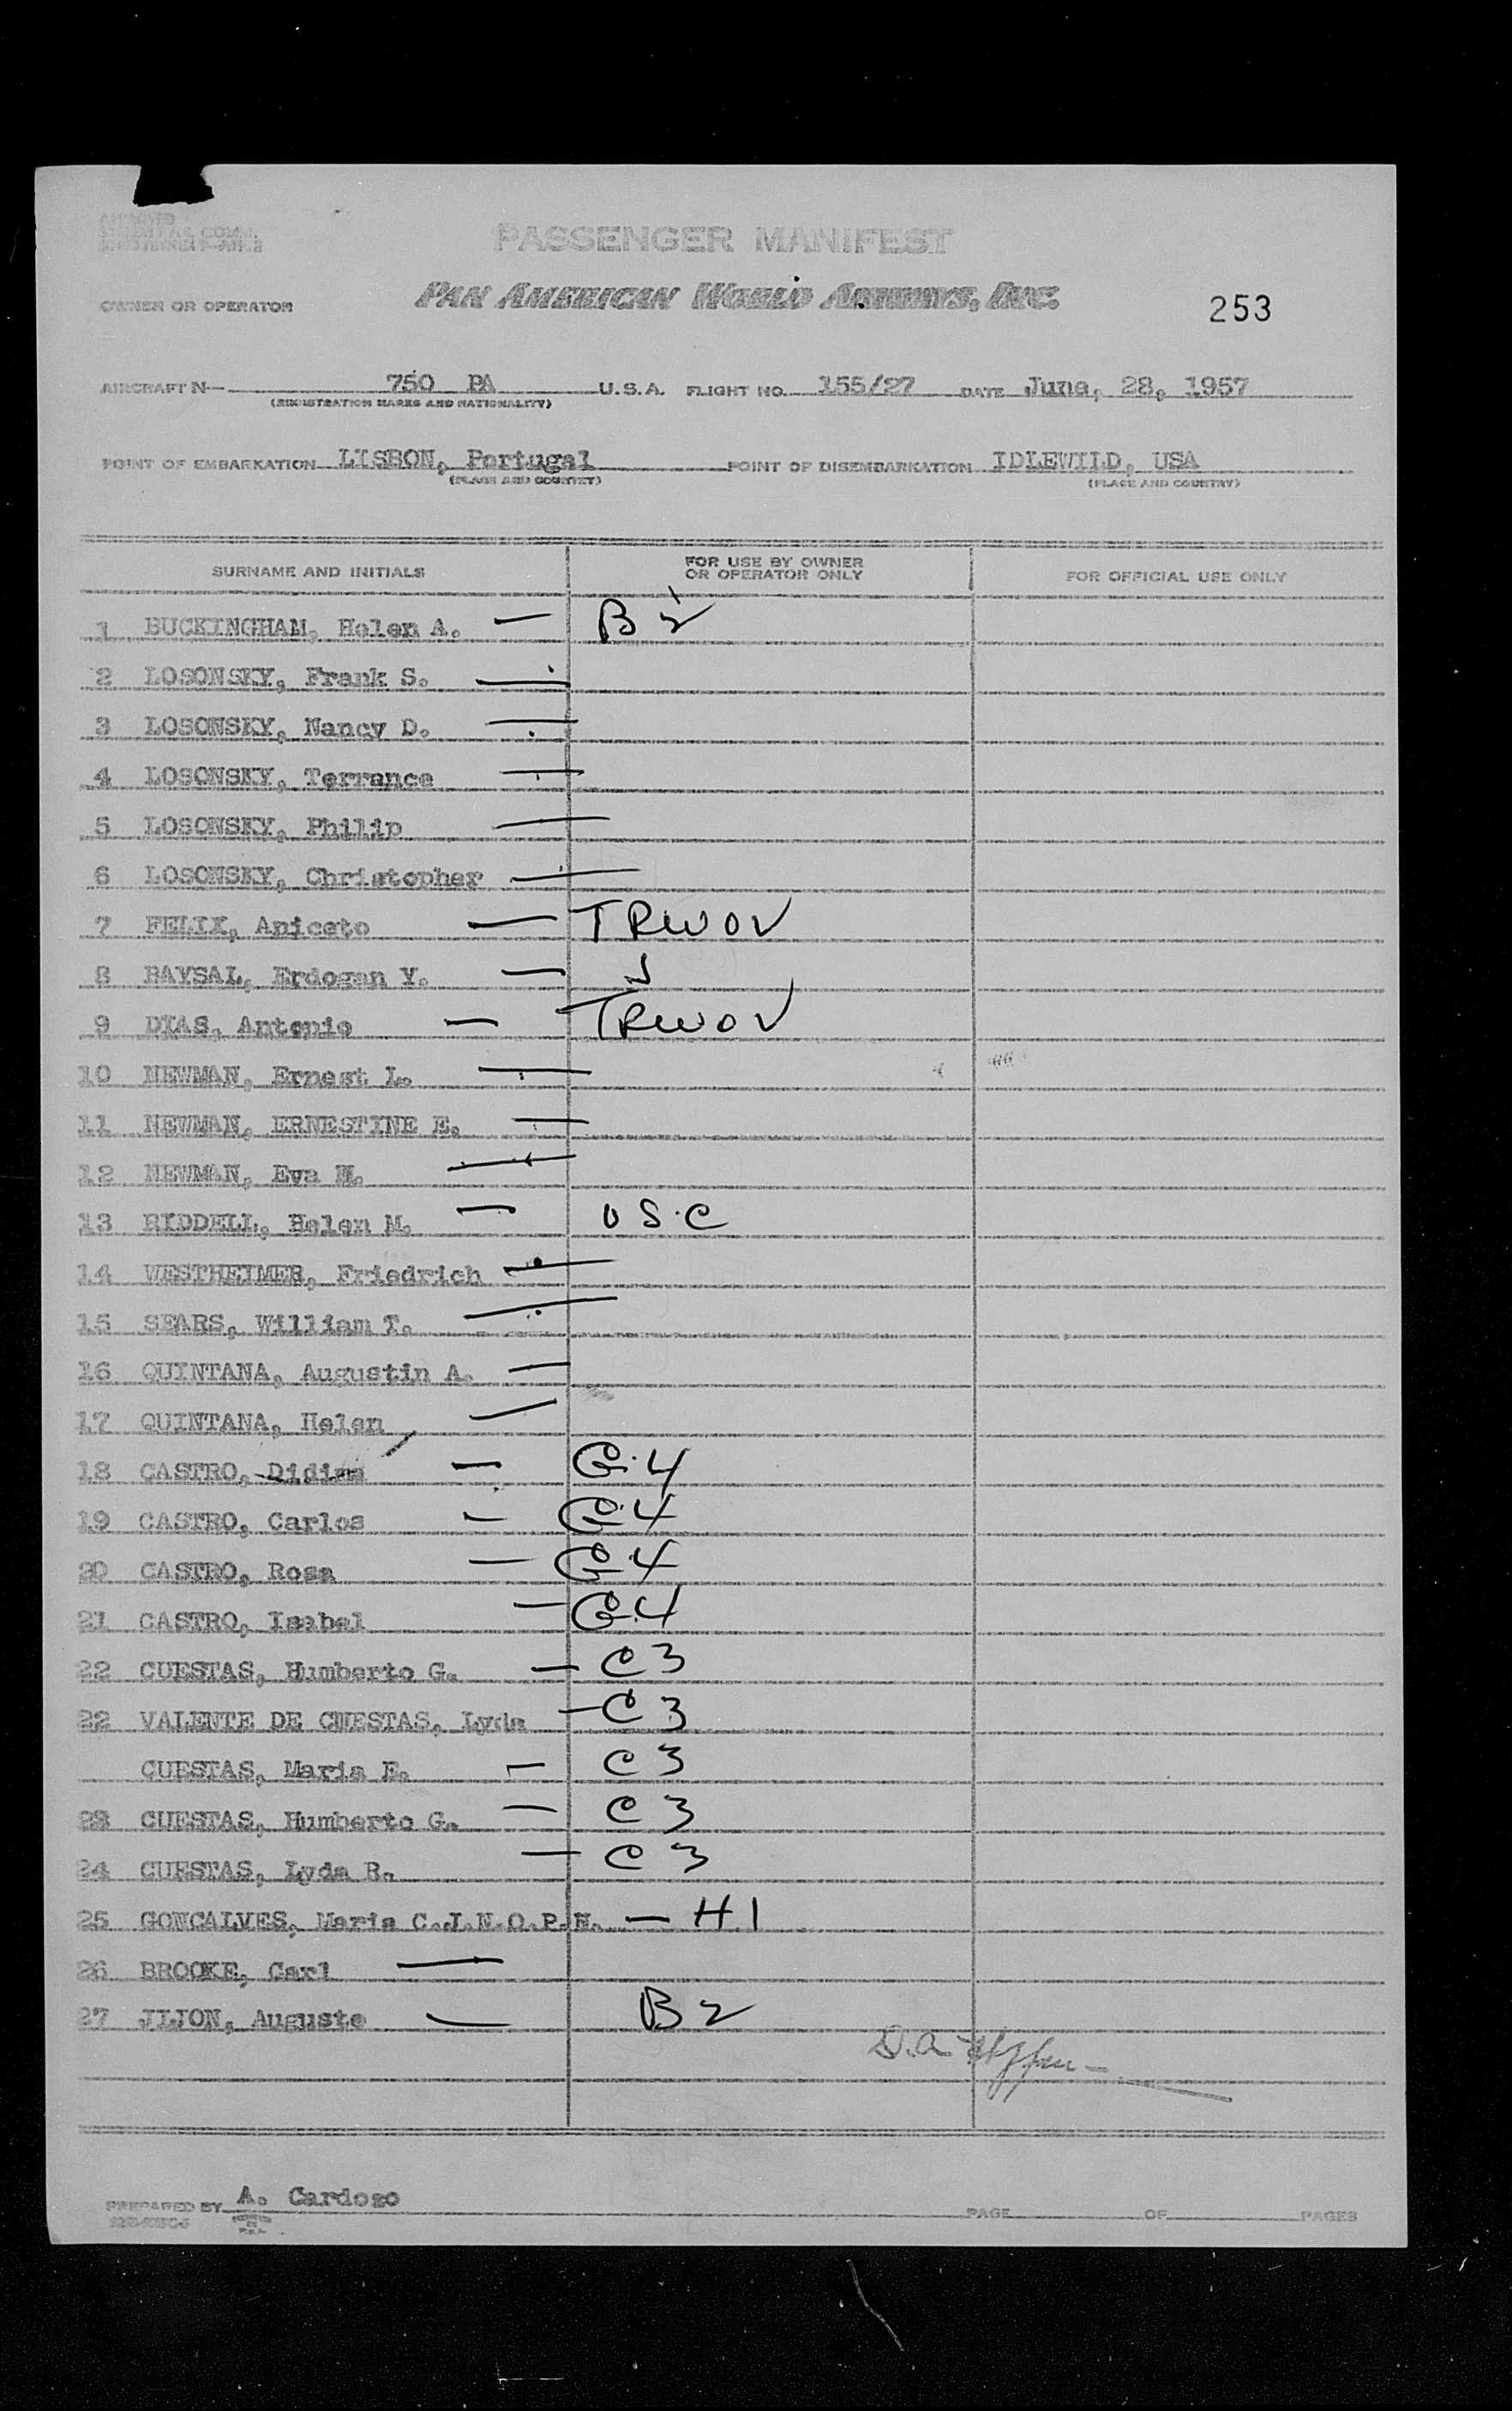 PASSENGER MANIFEST
OWNER OR OPERATOR PAN AMERICAN WORLD AIRWAYS, INC. 253
AIRCRAFT N- 750 PA U.S.A. FLIGHT NO. 155/27 DATE June, 28, 1957
(REGISTRATION MARKS AND NATIONALITY)
POINT OF EMBARKATION LISBON, Portugal POINT OF DISEMBARKATION IDLEWILD, USA
(PLACE AND COUNTRY) (PLACE AND COUNTRY)
SURNAME AND INITIALS FOR USE BY OWNER OR OPERATOR ONLY FOR OFFICIAL USE ONLY
1 BUCKINGHAM, Helen A. — B2
2 LOSONSKY, Frank S. —
3 LOSONSKY, Nancy D. —
4 LOSONSKY, Terrance —
5 LOSONSKY, Philip —
6 LOSONSKY, Christopher —
7 FELIX, Aniceto — TRWOV
8 BAYSAL, Erdogan Y. — J
9 DIAS, Antonio — TRWOV
10 NEWMAN, Ernest L. —
11 NEWMAN, ERNESTINE E. —
12 NEWMAN, Eva H. —
13 RIDDELL, Helen M. — USC
14 WESTHEIMER, Friedrich —
15 SEARS, William T. —
16 QUINTANA, Augustin A. —
17 QUINTANA, Helen —
18 CASTRO, Didima — G.4
19 CASTRO, Carlos — G.4
20 CASTRO, Rosa — G.4
21 CASTRO, Isabel — G.4
22 CUESTAS, Humberto G. — C3
22 VALENTE DE CUESTAS, Lyda — C3
CUESTAS, Maria E. — C3
23 CUESTAS, Humberto G. — C3
24 CUESTAS, Lyda R. — C3
25 GONCALVES, Maria C.J.N.O.P.N. — H.1
26 BROOKE, Carl —
27 JIJON, Augusto — B2
D.A.
PREPARED BY A. Cardoso PAGE OF PAGES